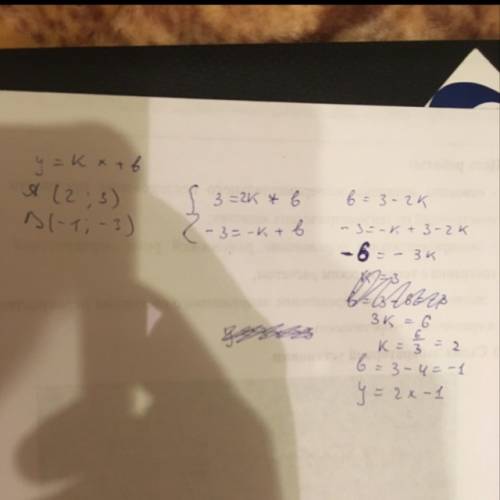 y = kx + b
A (2 ; 3)
B (-1; -3)
{ 3 = 2k + b
-3 = -k + b
b = 3 - 2k
-3 = -k + 3 - 2k
-6 = - 3k
3k = 6
k = 6/3 = 2
b = 3 - 4 = -1
y = 2x - 1